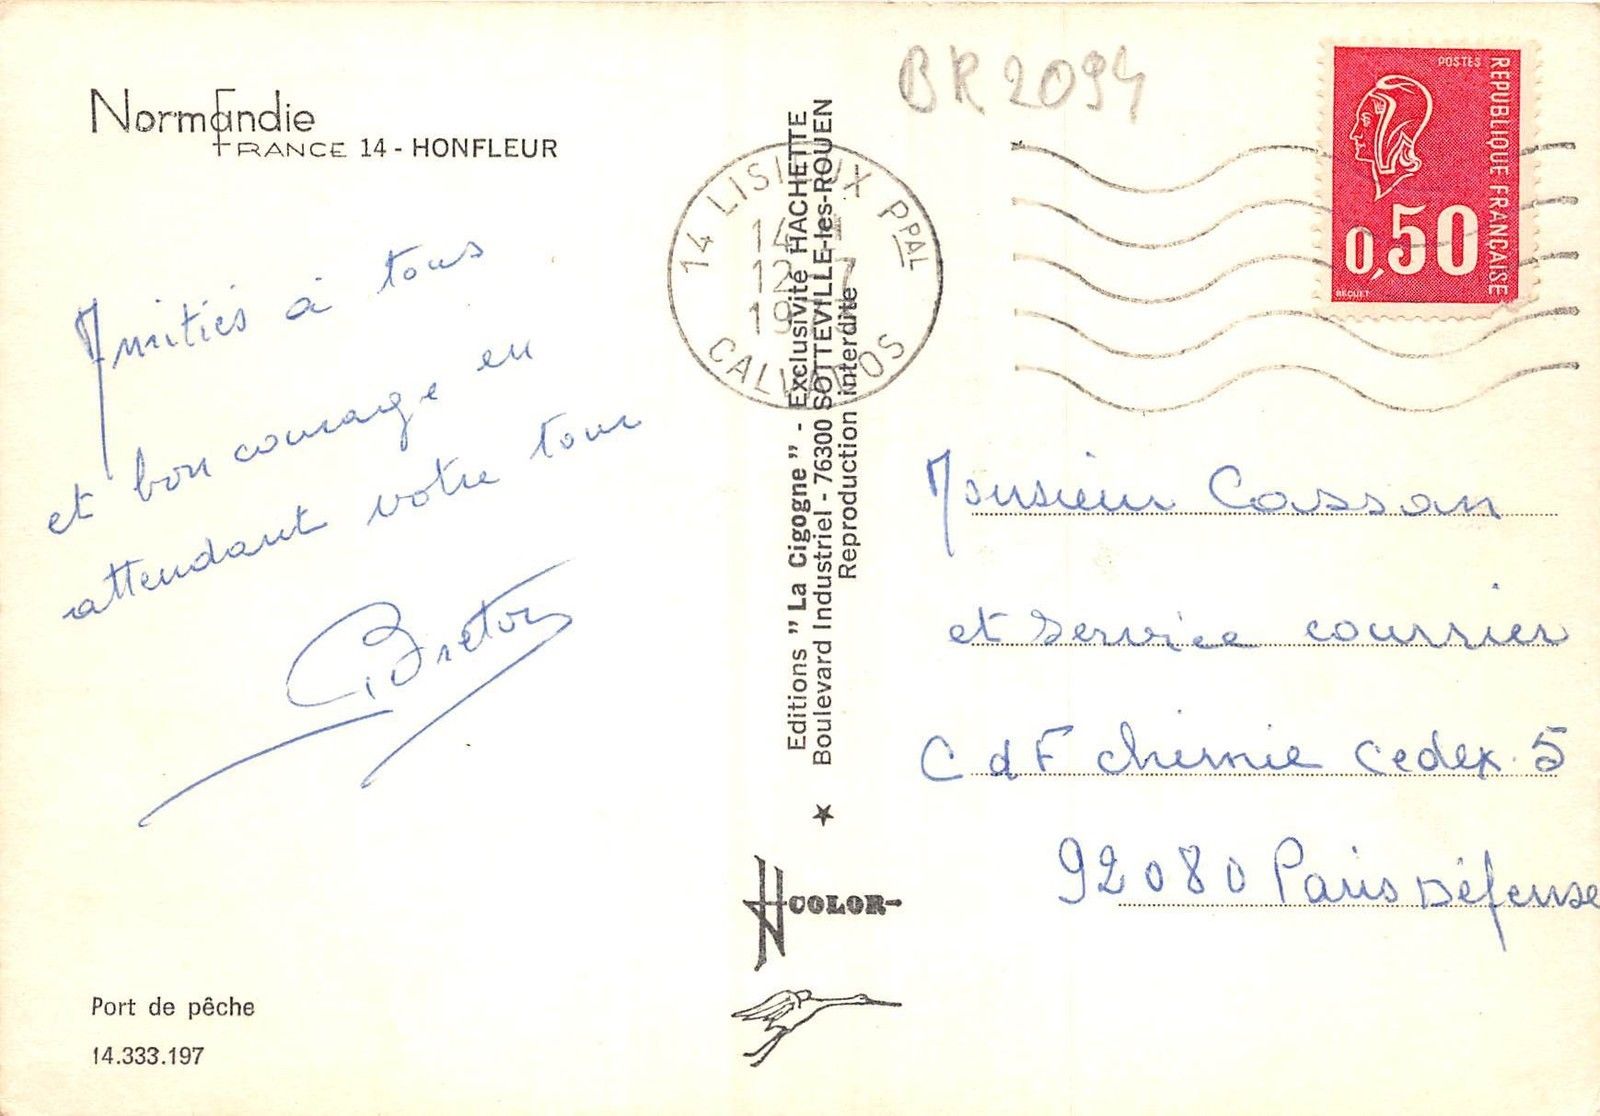 Normandie
FRANCE 14 - HONFLEUR
Amitiés à tous
et bon courage en
attendant votre tour
Breton
Port de pêche
14.333.197
Editions " La Cigogne " - Exclusivité HACHETTE
Boulevard Industriel - 76300 SOTTEVILLE-les-ROUEN
Reproduction interdite
COLOR
BR 2094
14 LISIEUX PPAL
12-7
CALVADOS
POSTES
REPUBLIQUE FRANCAISE
0,50
BEQUET
Monsieur Cassan
et Service courrier
C d F chimie Cedex 5
92080 Paris Défense